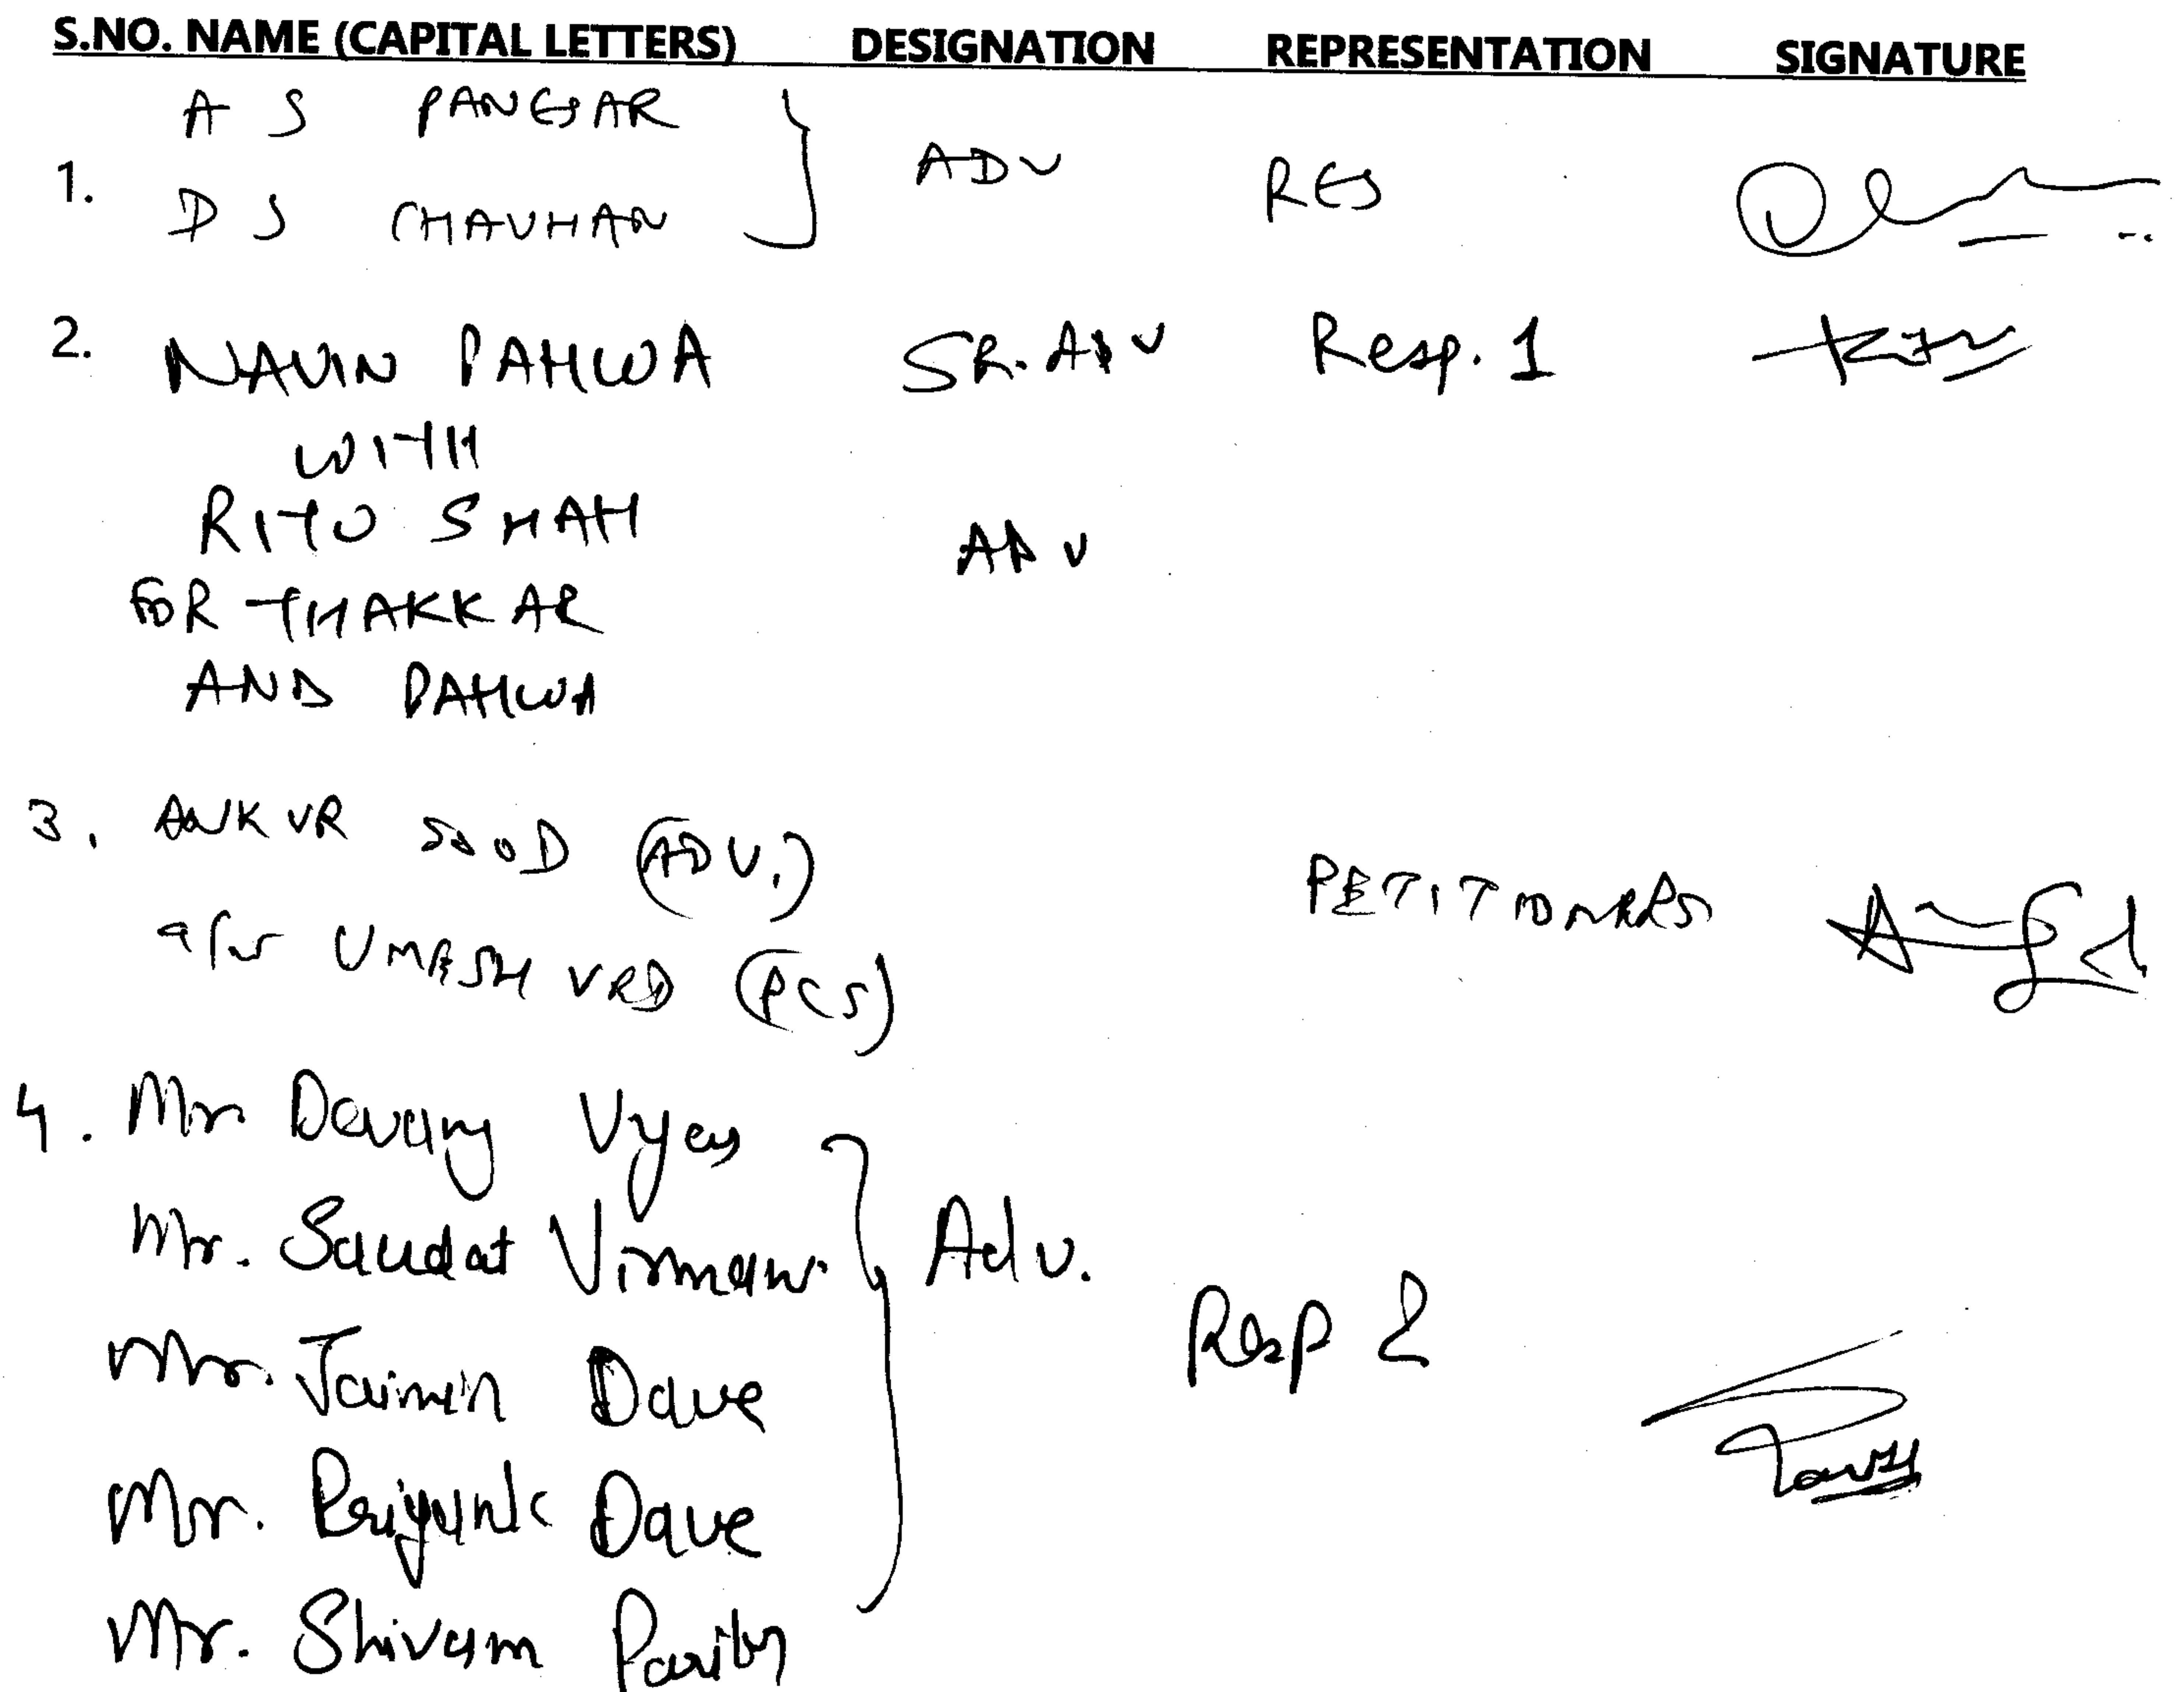 S.NO. NAME (CAPITAL LETTERS) DESIGNATION REPRESENTATION SIGNATURE
A S PANGSAR
1. ADV RES
D S CHAUHAN
2. NAVIN PAHWA SR. ADV Resp. 1
WITH
RITU SHAH ADV
FOR THAKKAR
AND PAHWA
3. ANKUR SOOD (ADV.) PETITIONERS
UMESH VED (PCS)
4. Mr. Devang Vyas
Mr. Virmani Adv.
Resp 2
Mr. Jaimin Dave
Mr. Priyank Dave
Mr. Shivam Parikh